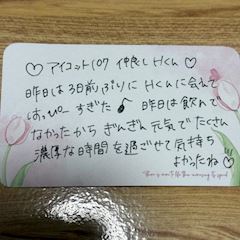 ♡ アイコット107 仲良しHくん ♡
昨日は3日前ぶりにHくんに会えて
はっぴーすぎた♪ 昨日は飲んで
なかったからぎんぎん元気でたくさん
濃厚な時間を過ごせて気持ち
よかったね♡